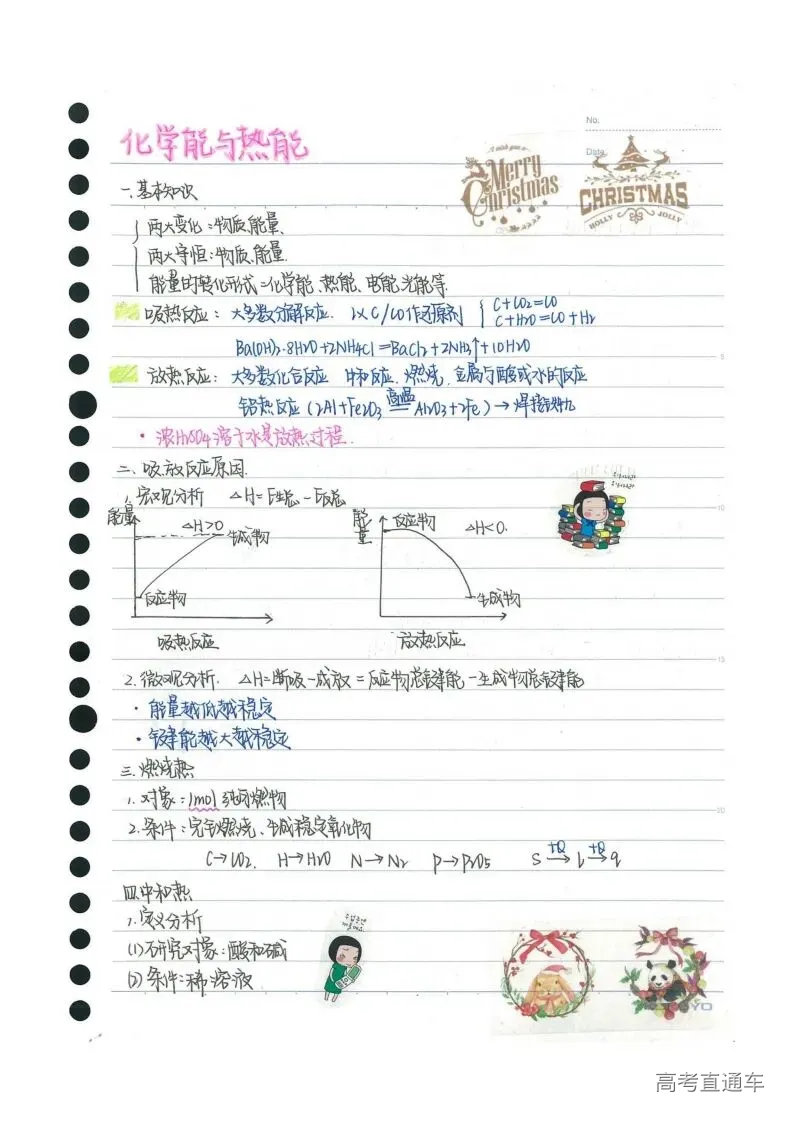 No.
Date
化学能与热能
a wish you a
Merry Christmas
CHRISTMAS
HOLLY JOLLY
一.基本知识
两大变化:物质、能量.
两大守恒:物质、能量.
能量的转化形式=化学能、热能、电能、光能等.
吸热反应: 大多数分解反应. 以C/CO作还原剂 { C+CO2=CO
C+H2O=CO+H2
Ba(OH)2·8H2O+2NH4Cl=BaCl2+2NH3↑+10H2O
5
放热反应: 大多数化合反应 中和反应. 燃烧. 金属与酸或水的反应
铝热反应 (2Al+Fe2O3 高温 Al2O3+2Fe) → 焊接铁轨
· 浓H2SO4溶于水是放热过程.
二. 吸放反应原因.
1.宏观分析 △H=E生总-E反总
10
能量 △H>0 生成物 反应物
吸热反应
能量 反应物 △H<0. 生成物
放热反应
15
2.微观分析. △H=断吸-成放=反应物总键能-生成物总键能
· 能量越低越稳定
· 键能越大越稳定
三.燃烧热
1.对象:1mol纯可燃物
20
2.条件:完全燃烧、生成稳定氧化物
C→CO2. H→H2O N→N2 P→P2O5 S +Q→ l +Q→ g
四.中和热
1.定义分析
(1)研究对象:酸和碱
(2)条件:稀溶液
高考直通车